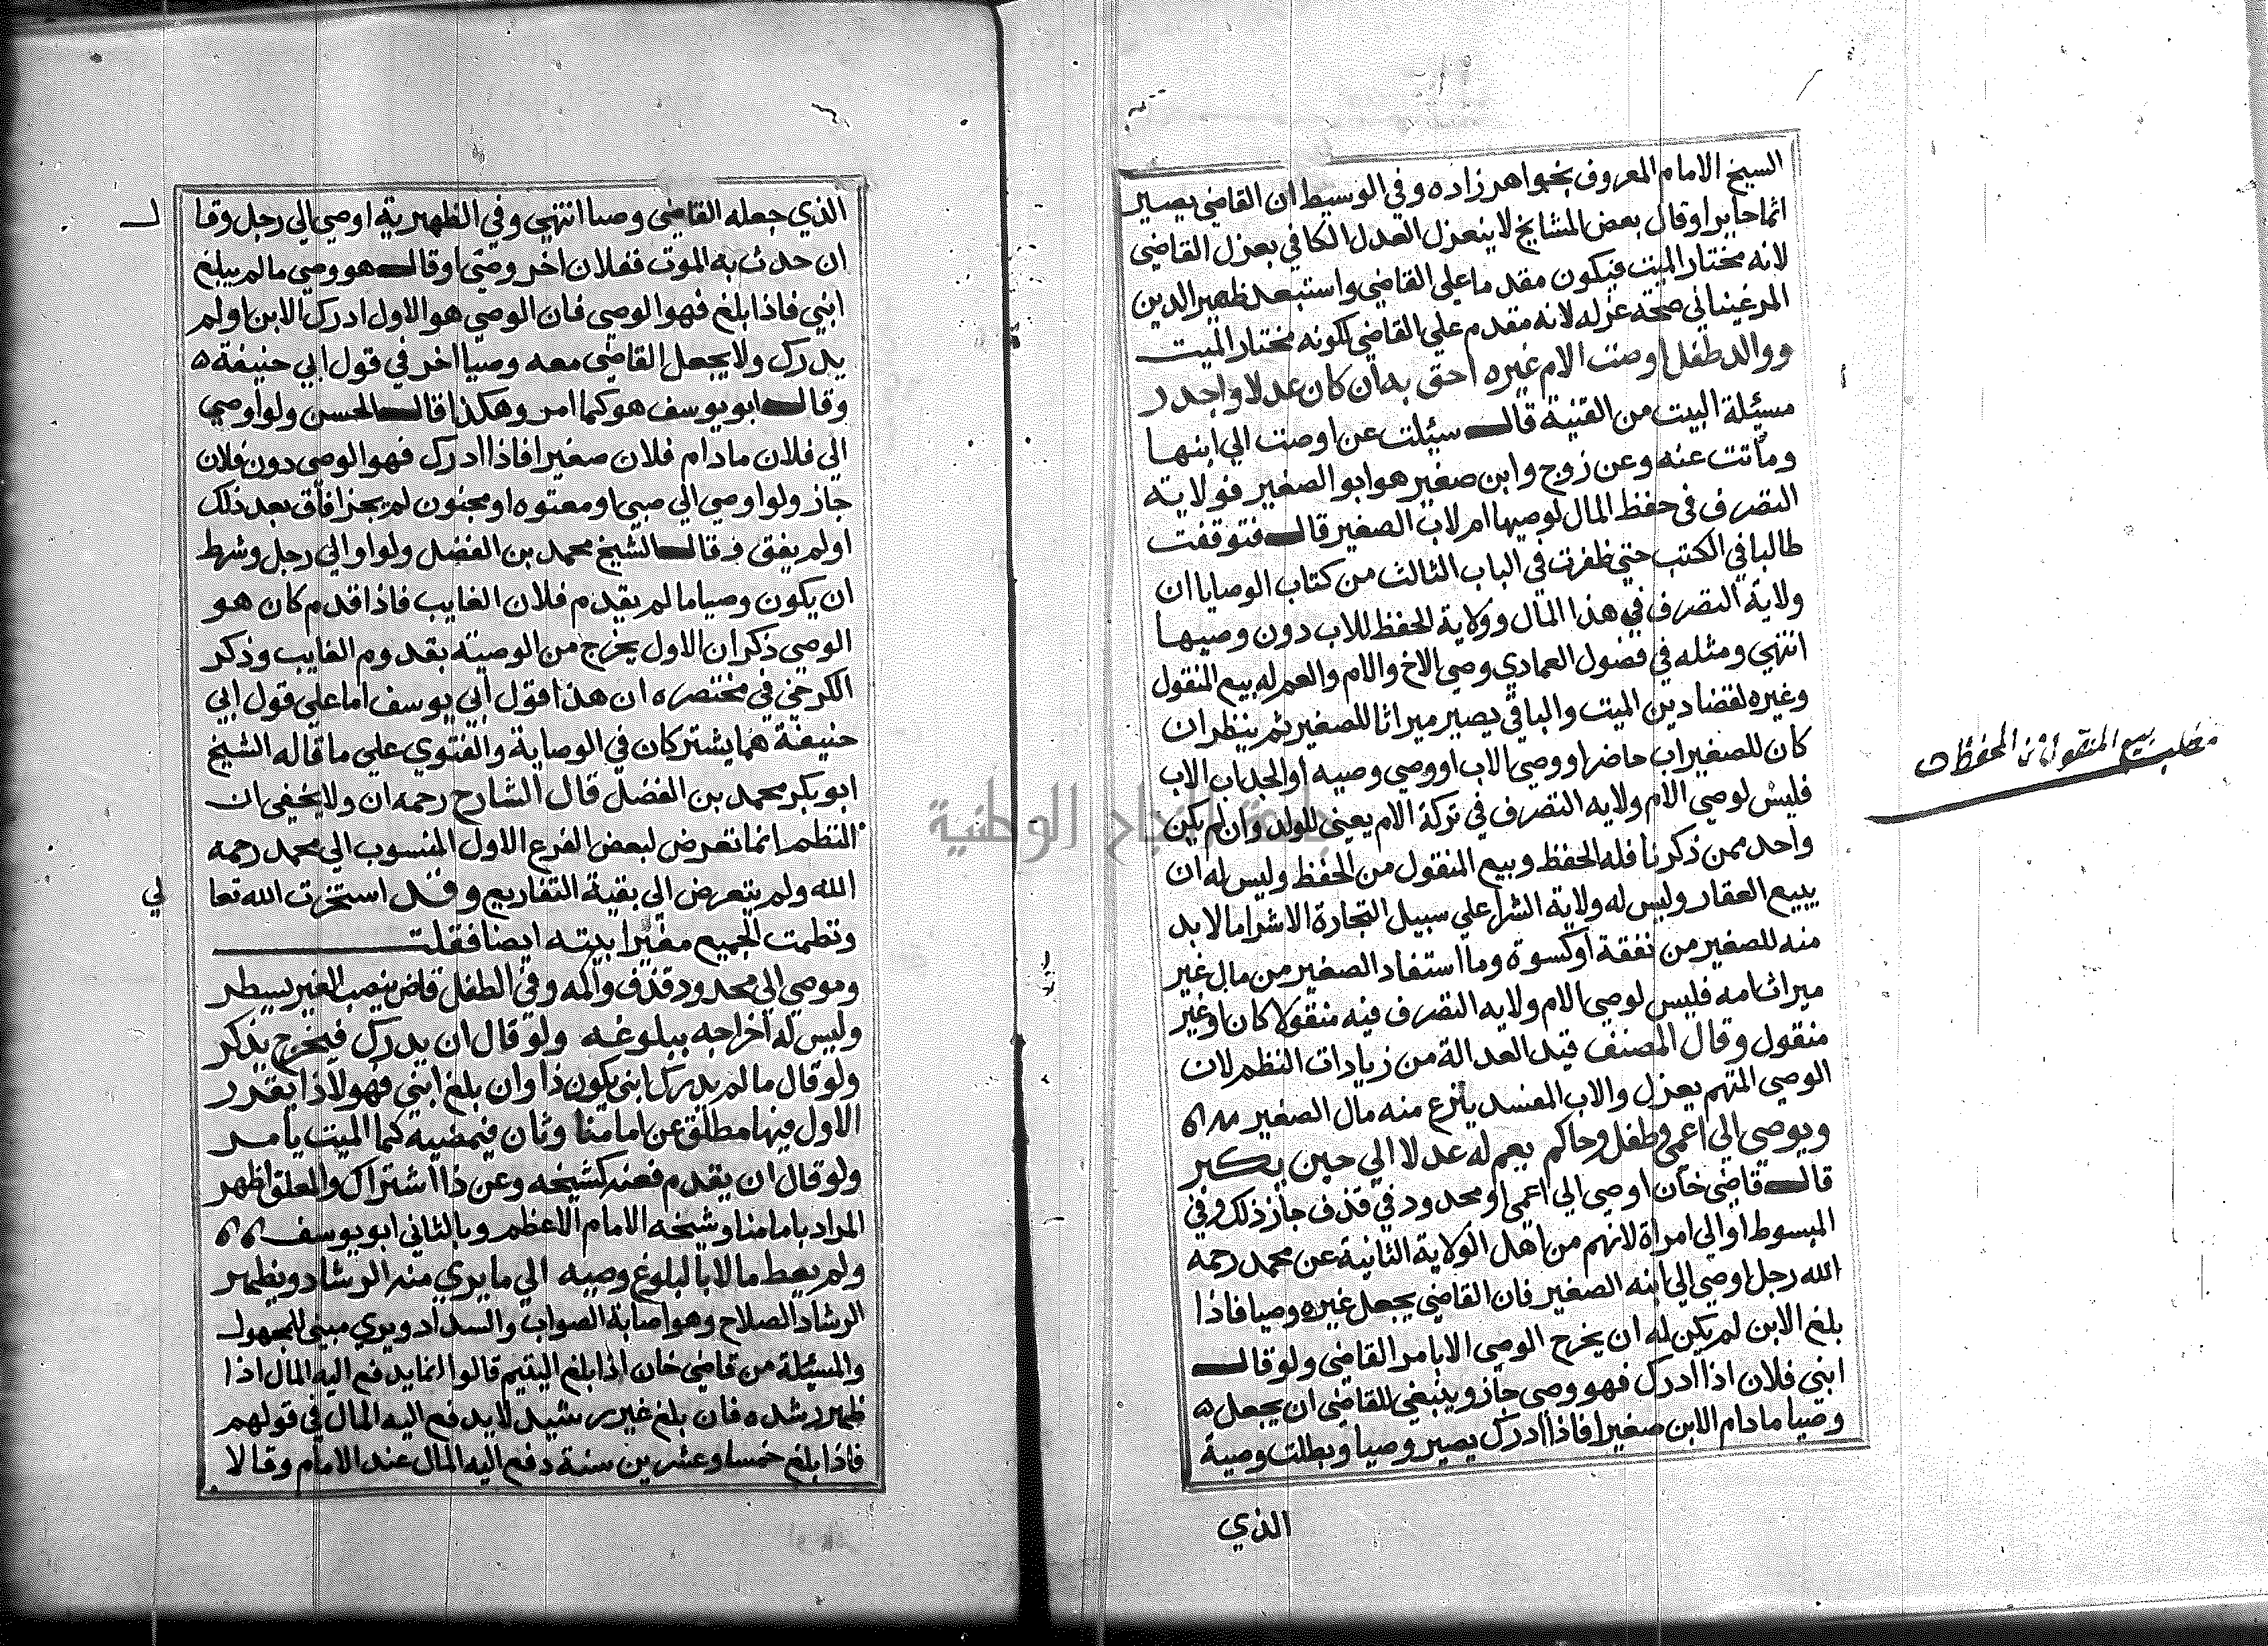 الشيخ الامام المعروف بخواهر زاده وفي الوسيط ان القاضي يصير
اثما جايرا وقال بعض المشايخ لا ينعزل العدل الكافي بعزل القاضي
لانه مختار الميت فيكون مقدما علي القاضي واستبعد ظهير الدين
المرغيناني صحة عزله لانه مقدم علي القاضي لكونه مختار الميت
ووالد طفل اوصت الام غيره احق به ان كان عدلا واجدر
مسئلة البيت من القنية قال سئلت عن اوصت الي ابنها
وماتت عنه وعن زوج وابن صغير هو ابو الصغير فولاية
التصرف في حفظ المال لوصيها ام لاب الصغير قال فتوقفت
طالبا في الكتب حتي ظفرت في الباب الثالث من كتاب الوصايا ان
ولاية التصرف في هذا المال وولاية الحفظ للاب دون وصيها
انتهي ومثله في فصول العمادي وصي الاخ والام والعم له بيع المنقول
وغيره لقضا دين الميت والباقي يصير ميراثا للصغير ثم ينظر ان
كان للصغير اب حاضر او وصي الاب او وصي وصيه او الجد اب الاب
فليس لوصي الام ولايه التصرف في تركة الام يعني للولد وان لم يكن
واحد ممن ذكرنا فله الحفظ وبيع المنقول من الحفظ وليس له ان
يبيع العقار وليس له ولاية الشرا علي سبيل التجارة الا شرا ما لا بد
منه للصغير من نفقة او كسوة وما استفاد الصغير من مال غير
ميراث امه فليس لوصي الام ولايه التصرف فيه منقولا كان او غير
منقول وقال المصنف قيد العدالة من زيادات النظم لان
الوصي المتهم يعزل والاب المفسد ينزع منه مال الصغير
ويوصي الي اعمي وطفل وحاكم يعم له عدلا الي حين يكبر
قال قاضي خان اوصي الي اعمي او محدود في قذف جاز ذلك وفي
المبسوط او الي امراة لانهم من اهل الولاية الثانية عن محمد رحمه
الله رجل اوصي الي ابنه الصغير فان القاضي يجعل غيره وصيا فاذا
بلغ الابن لم يكن له ان يخرج الوصي الا بامر القاضي ولو قال
ابني فلان اذا ادرك فهو وصي جاز وينبغي للقاضي ان يجعل ه
وصيا ما دام الابن صغيرا فاذا ادرك يصير وصيا وبطلت وصية
الذي
مطلب بيع المنقول من الحفظ
الذي جعله القاضي وصيا انتهي وفي الظهيرية اوصي الي رجل وقا ل
ان حدث به الموت ففلان اخر وصي او قال هو وصي ما لم يبلغ
ابني فاذا بلغ فهو الوصي فان الوصي هو الاول ادرك الابن او لم
يدرك ولا يجعل القاضي معه وصيا اخر في قول ابي حنيفة ه
وقال ابو يوسف هو كما امر وهكذا قال الحسن ولو اوصي
الي فلان ما دام فلان صغيرا فاذا ادرك فهو الوصي دون فلان
جاز ولو اوصي الي صبي او معتوه او مجنون لم يجز افاق بعد ذلك
او لم يفق وقال الشيخ محمد بن الفضل ولو اوالي رجل وشرط
ان يكون وصيا ما لم يقدم فلان الغايب فاذا قدم كان هو
الوصي ذكر ان الاول يخرج من الوصية بقدوم الغايب وذكر
الكرخي في مختصره ان هذا قول ابي يوسف اما علي قول ابي
حنيفة هما يشتركان في الوصاية والفتوي علي ما قاله الشيخ
ابو بكر محمد بن الفضل قال الشارح رحمه ان ولا يخفي ان
النظم انما تعرض لبعض الفرع الاول المنسوب الي محمد رحمه
الله ولم يتعرض الي بقية التفاريع وقد استخرت الله تعا لي
ونظمت الجميع مغيرا بيته ايضا فقلت
وموصي الي محدود قذف وامه وفي الطفل قاض ينصب الغير يسطر
وليس له اخراجه ببلوغه ولو قال ان يدرك فيخرج يذكر
ولو قال ما لم يدرك ابني يكون ذا وان بلغ ابني فهو لا ذا يقدر
الاول فيها مطلق عن امامنا وثان فيمضيه كما الميت يامر
ولو قال ان يقدم فعنه كشيخه وعن ذا اشتراك والمعلق اظهر
المراد بامامنا وشيخه الامام الاعظم وبالثاني ابو يوسف
ولم يعط مالا بالبلوغ وصيه الي ما يري منه الرشاد ويظهر
الرشاد الصلاح وهو اصابة الصواب والسداد ويري مبني للمجهول
والمسئلة من قاضي خان اذا بلغ اليتيم قالوا انما يدفع اليه المال اذا
ظهر رشده فان بلغ غير رشيد لا يدفع اليه المال في قولهم
فاذا بلغ خمسا وعشرين سنة دفع اليه المال عند الامام وقالا
جامعة النجاح الوطنية